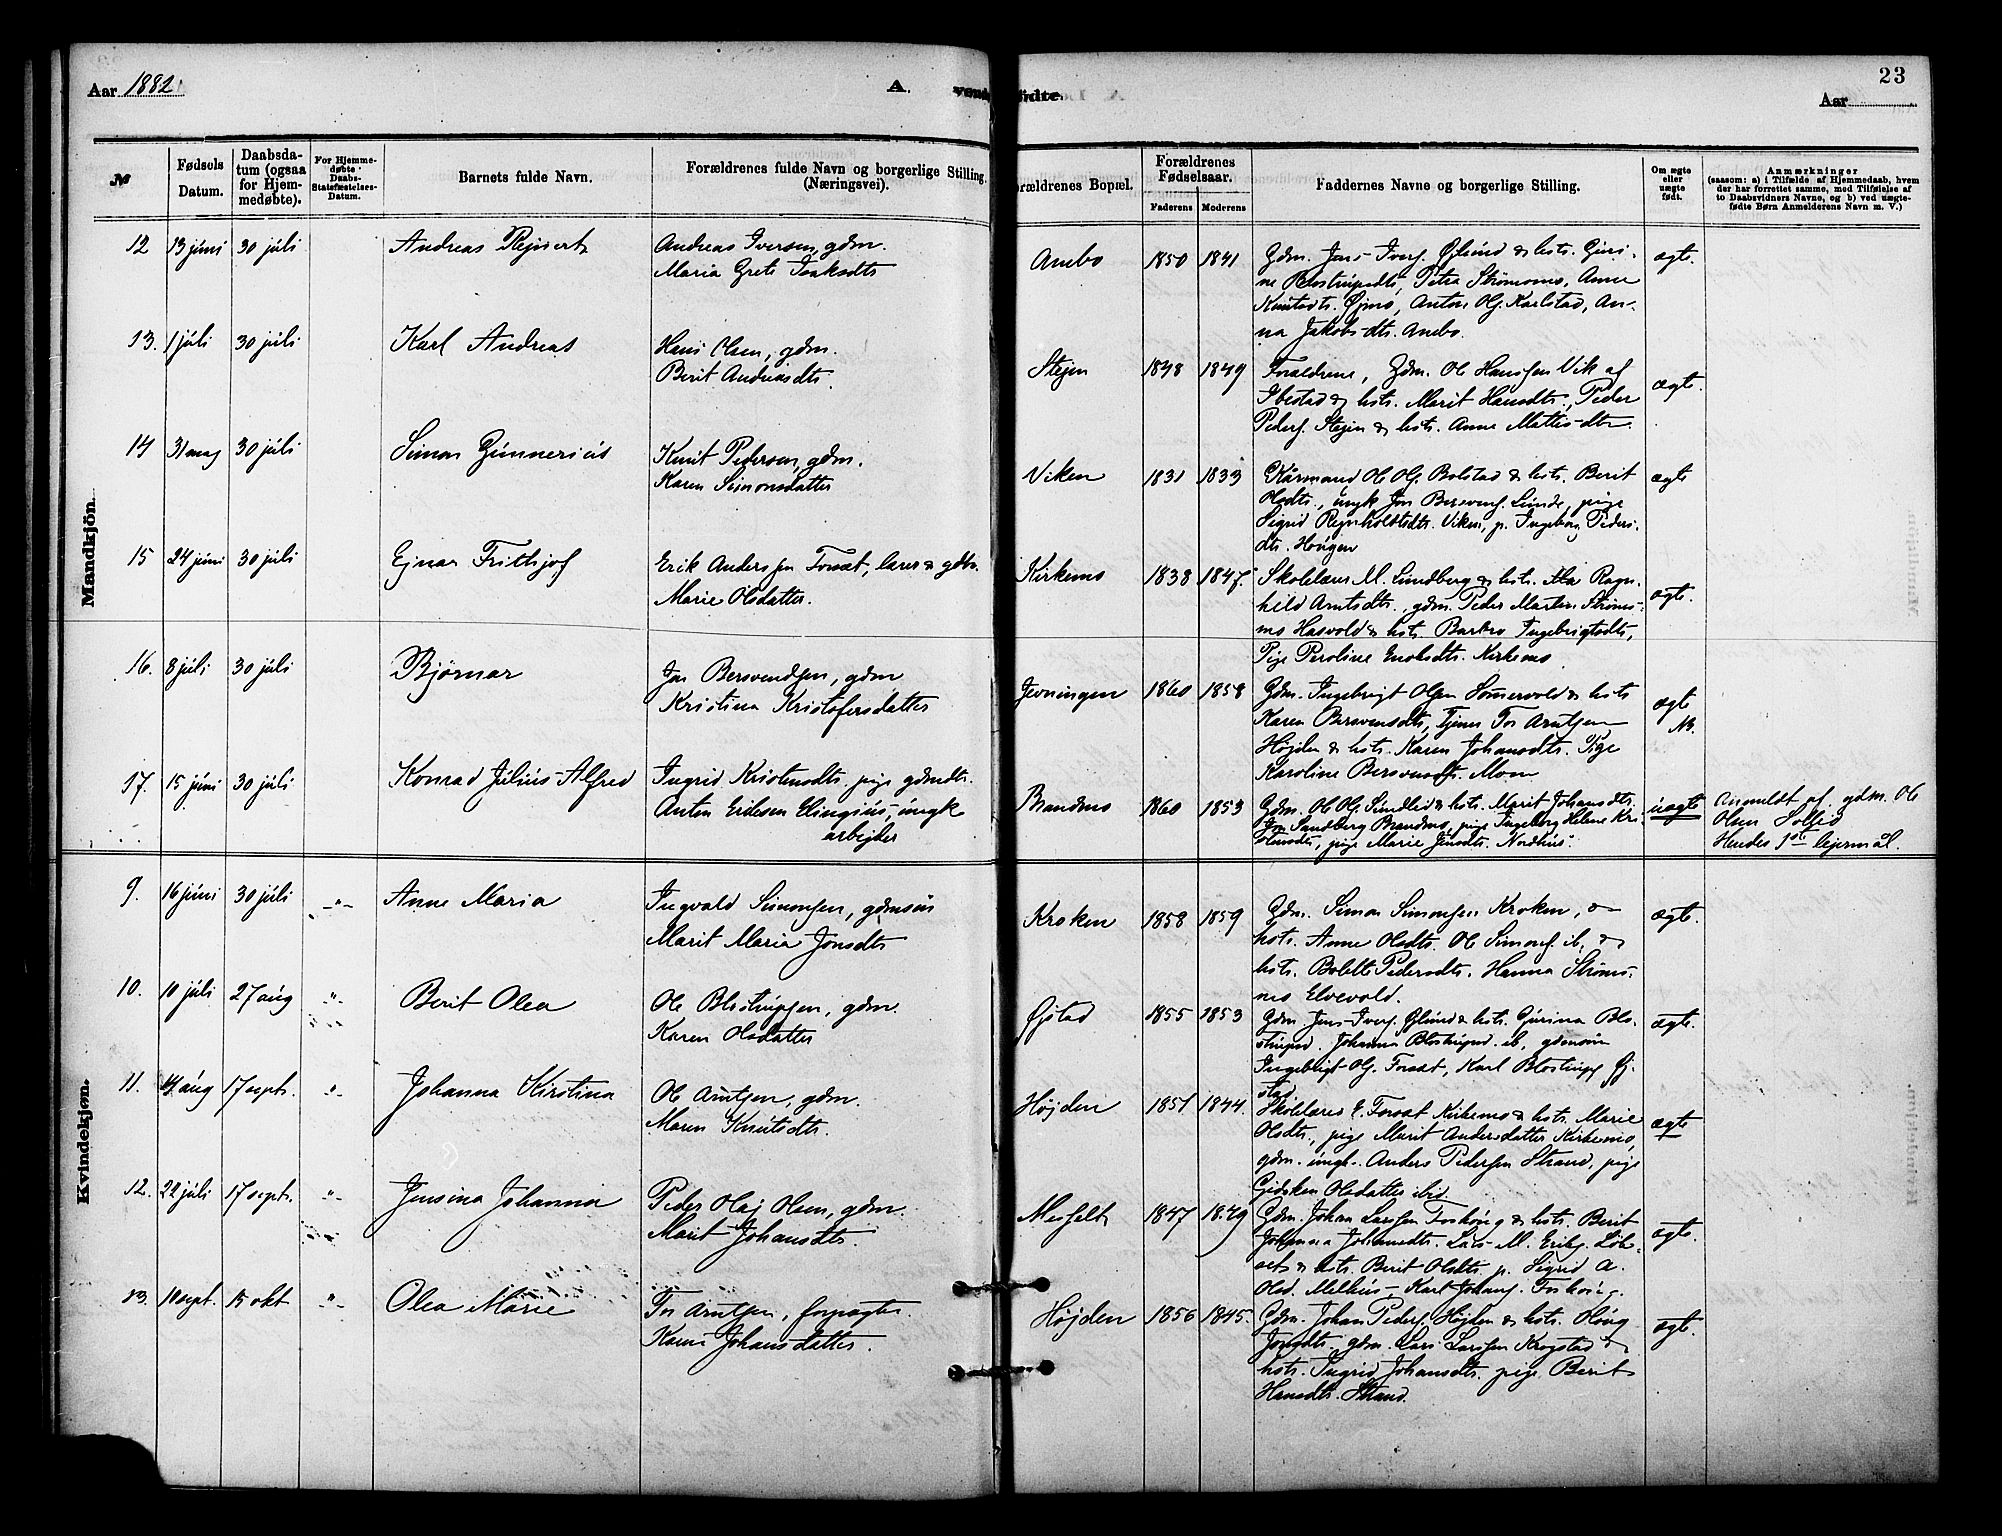 23
Aar 1882
A.
Aar
№
Fødsels Datum.
Daabsdatum (ogsaa for Hjemmedøbte).
For Hjemmedøbte Daabs-Stadfæstelses-Datum.
Barnets fulde Navn.
Forældrenes fulde Navn og borgerlige Stilling. (Næringsvei).
Forældrenes Bopæl.
Forældrenes Fødselsaar.
Faderens
Moderens
Faddernes Navne og borgerlige Stilling.
Om ægte eller uægte født.
Anmærkninger
(saasom: a) i Tilfælde af Hjemmedaab, hvem
der har forrettet samme, med Tilføielse af
to Daabsvidners Navne, og b) ved uægte-
fødte Børn Anmelderens Navn m. V.)
Mandkjön.
12 13 juni 30 juli Andreas Andreas Iversen, gdm.
Maria Grete Isaksdtr
Anebo 1850 1841 Gdm. Jens Ivers. Øglund & hstr. Guri-
ne Blostrupsdtr, Petra Strømsmo, Anne
Knutsdtr. Øjmo, Anton Ols. Karlstad, An-
na Jakobsdtr. Anebo.
ægte.
13. 1 juli 30 juli Karl Andreas Hans Olsen, gdm.
Berit Andreasdtr.
Stejen 1848 1849 Forældrene, Gdm. Ole Hanssen Vik af
Ibestad & hstr. Marit Hansdtr., Peder
Peders. Stejen & hstr. Anne Mattisdtr.
ægte.
14 31 maj 30 juli Simon Gunnerius Knut Pedersen, gdm.
Karen Simonsdatter
Viken 1831 1833 Kårmand Ole Ols. Bolstad & hstr. Berit
Olsdtr., ungk Jon Bersvens. Lunde, pige
Sigrid Viken, p. Ingeborg Peders-
dtr. Hougen
ægte
15 24 juni 30 juli Ejnar Frithjof Erik Anderssen Fosset, lærer & gdbr.
Marie Olsdatter.
Kirkemo 1838 1847. Skolelærer M. Lundberg & hstr. Ragn-
hild Arntsdtr., gdm. Peder Martin Strøms-
mo Hasvold & hstr. Barbro Ingebrigtsdtr,
Pige Peroline Enoksdtr. Kirkemo.
ægte.
16. 8 juli 30 juli Bjørnar Jon Bersvendsen, gdm
Kristina Kristofersdatter
Jevningen 1860 1858 Gdm. Ingebrigt Olsen Sømervold & hstr
Karen Bersvensdtr, Tjener Tor Arntsen
Højden & hstr. Karen Johansdtr. Pige
Karoline Bersvensdtr. Moen
ægte
NB.
17. 15 juni 30 juli Konrad Julius Alfred Ingrid Kristensdtr. pige gdmdtr.
Anton ungk
arbejder
Brandmo 1860 1853 Gdm. Ole Ols. Sundlid & hstr. Marit Johansdtr.
Jon Sandberg Brandmo, pige Ingeborg Helene Kri-
stensdtr, pige Marie Jensdtr. Nordhus.
uægte
Anmeldt af gdm. Ole
Olsen Sollid
Hendes 1ste lejermål.
Kvindekjön.
9. 16 juni 30 juli -"- Anne Maria Ingvald Simonsen, gdmsøn
Marit Maria Jonsdtr
Kroken 1858 1859 Gdm. Simon Simonsen Kroken, &
hstr. Anne Olsdtr. Ole Simons. ib. &
hstr. Bolette Pedersdtr. Hanna Strøms-
mo Elvevold.
ægte.
10. 10 juli 27 aug -"- Berit Olea Ole Blostrupsen, gdm.
Karen Olsdatter
Øjstad 1855 1853 Gdm. Jens Ivers. Øglund & hstr. Gurina Blo-
strupsd. Johanna Blostrupsd. ib, gdmsøn
Ingebrigt Ols. Fosset, Karl Blostrups Øj-
stad.
ægte.
11. 4 aug 17 septr. -"- Johanna Kirstina Ole Arntsen, gdm.
Maren Knutsdtr.
Højden 1851 1844. Skolelærer E. Fosset Kirkemo & hstr. Marie
Olsdtr., pige Marit Andersdatter Kirkemo,
gdm. ungk. Anders Pedersen Strand, pige
Gjidsken Olsdatter ibid.
ægte
12. 22 juli 17 septr. -"- Jensina Johanna Peder Olaj Olsen, gdm.
Marit Johansdtr.
Mesfelt 1847 1849 Gdm. Johan Larssen Foshoug & hstr. Berit
Johanna Johansdtr. Lars M. Eriks. Løb-
set & hstr. Berit Olsdtr. p. Sigrid A.
Olsd. Melhus, Karl Johans. Foshoug.
ægte.
13. 10 sept. 15 okt -"- Olea Marie Tor Arntsen, forpagter
Karen Johansdatter.
Højden 1856 1845. Gdm. Johan Peders. Højden & hstr.
Jonsdtr. gdm. Lars Larssen Krogstad &
hstr. Ingrid Johansdtr. pige Berit
Hansdtr. Strand.
ægte.